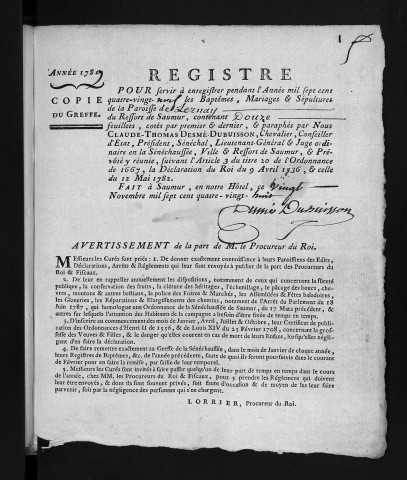 1
REGISTRE
ANNÉE 1789
COPIE
DU GREFFE.
POUR servir à enregistrer pendant l'Année mil sept cent
quatre-vingt-neuf les Baptêmes, Mariages & Sépultures
de la Paroisse de
du Ressort de Saumur, contenant Douze
feuillets, cotés par premier & dernier, & paraphés par Nous
CLAUDE-THOMAS DESMÉ-DUBUISSON, Chevalier, Conseiller
d'Etat, Président, Sénéchal, Lieutenant-Général & Juge ordi-
naire en la Sénéchaussée, Ville & Ressort de Saumur, & Pré-
vôté y réunie, suivant l'Article 3 du titre 20 de l'Ordonnance
de 1667, la Déclaration du Roi du 9 Avril 1736, & celle
du 12 Mai 1782.
FAIT à Saumur, en notre Hôtel, ce Vingt
Novembre mil sept cent quatre-vingt-huit
Desmé Dubuisson
AVERTISSEMENT de la part de M. le Procureur du Roi.
Messieurs les Curés sont priés : 1. De donner exactement connoissance à leurs Paroissiens des Edits,
Déclarations, Arrêts & Réglements qui leur sont envoyés à publier de la part des Procureurs du
Roi & Fiscaux.
2. De leur en rappeller annuellement les dispositions, notamment de ceux qui concernent la sûreté
publique, la conservation des fruits, la clôture des héritages, l'échenillage, le pacage des boucs, chev-
res, moutons & autres bestiaux, la police des Foires & Marchés, les Assemblées & Fêtes baladoires,
les Glaneries, les Réparations & Elargissements des chemins, notamment de l'Arrêt du Parlement de 18
Juin 1787, qui homologue une Ordonnance de la Sénéchaussée de Saumur, du 17 Mars précédent, &
autres sur lesquels l'attention des Habitants de la campagne a besoin d'être fixée de temps en temps.
3. D'inscrire au commencement des mois de Janvier, Avril, Juillet & Octobre, leur Certificat de publi-
cation des Ordonnances d'Henri II de 1556, & de Louis XIV du 25 Février 1708, concernant la gros-
sesse des Veuves & Filles, & le danger qu'elles courent en cas de mort de leurs Enfans, lorsqu'elles négli-
gent d'en faire la déclaration.
4. De faire remettre exactement au Greffe de la Sénéchaussée, dans le mois de Janvier de chaque année,
leurs Registres de Baptêmes, &c. de l'année précédente, faute de quoi ils seront poursuivis dans le courant
de Février pour en faire la remise, par saisie de leur temporel.
5. Messieurs les Curés sont invités à faire passer quelqu'un de leur part de temps en temps dans le cours
de l'année, chez MM. les Procureurs du Roi & Fiscaux, pour y prendre les Réglements qui doivent
leur être envoyés, & dont ils sont souvent privés, soit faute d'occasion & de moyen de les leur faire
parvenir, soit par la négligence des personnes qui s'en chargent.
LORRIER, Procureur du Roi.